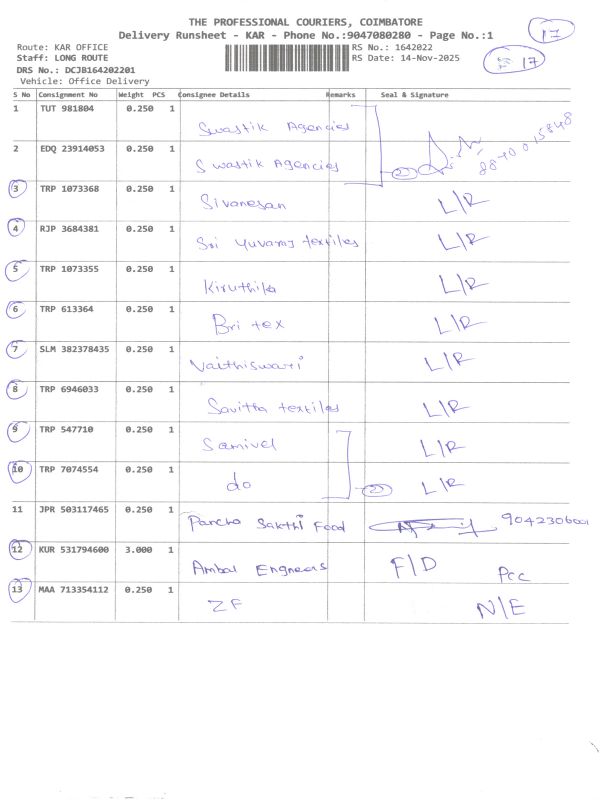 THE PROFESSIONAL COURIERS, COIMBATORE
17
Delivery Runsheet - KAR - Phone No.:9047080280 - Page No.:1
Route: KAR OFFICE
RS No.: 1642022
Staff: LONG ROUTE
RS Date: 14-Nov-2025
17
DRS No.: DCJB164202201
Vehicle: Office Delivery
S No Consignment No Weight PCS Consignee Details Remarks Seal & Signature
1 TUT 981804 0.250 1 Swastik Agencies
2 EDQ 23914053 0.250 1 Swastik Agencies 2
3 TRP 1073368 0.250 1 Sivanesan L/R
4 RJP 3684381 0.250 1 Sri Yuvaraj textiles L/R
5 TRP 1073355 0.250 1 Kiruthika L/R
6 TRP 613364 0.250 1 Bri tex L/R
7 SLM 382378435 0.250 1 Vaithiswari L/R
8 TRP 6946033 0.250 1 Savitha textiles L/R
9 TRP 547710 0.250 1 Samivel L/R
10 TRP 7074554 0.250 1 do 2 L/R
11 JPR 503117465 0.250 1 Pancho Sakthi Food
12 KUR 531794600 3.000 1 Ambal Engneers F/D Pcc
13 MAA 713354112 0.250 1 ZF N/E